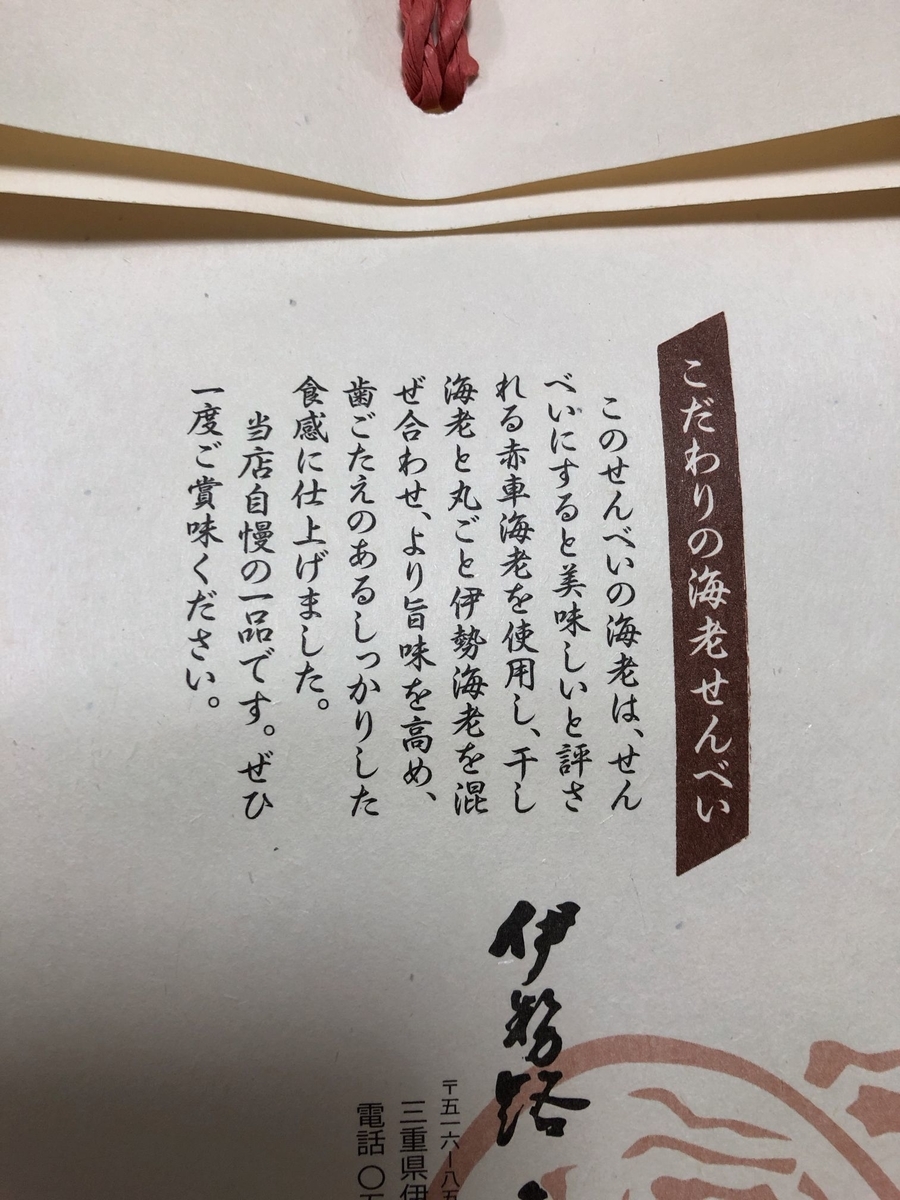 こだわりの海老せんべい
このせんべいの海老は、せん
べいにすると美味しいと評さ
れる赤車海老を使用し、干し
海老と丸ごと伊勢海老を混
ぜ合わせ、より旨味を高め、
歯ごたえのあるしっかりした
食感に仕上げました。
当店自慢の一品です。ぜひ
一度ご賞味ください。
伊勢路
〒五一六ー八五
三重県伊
電話〇五